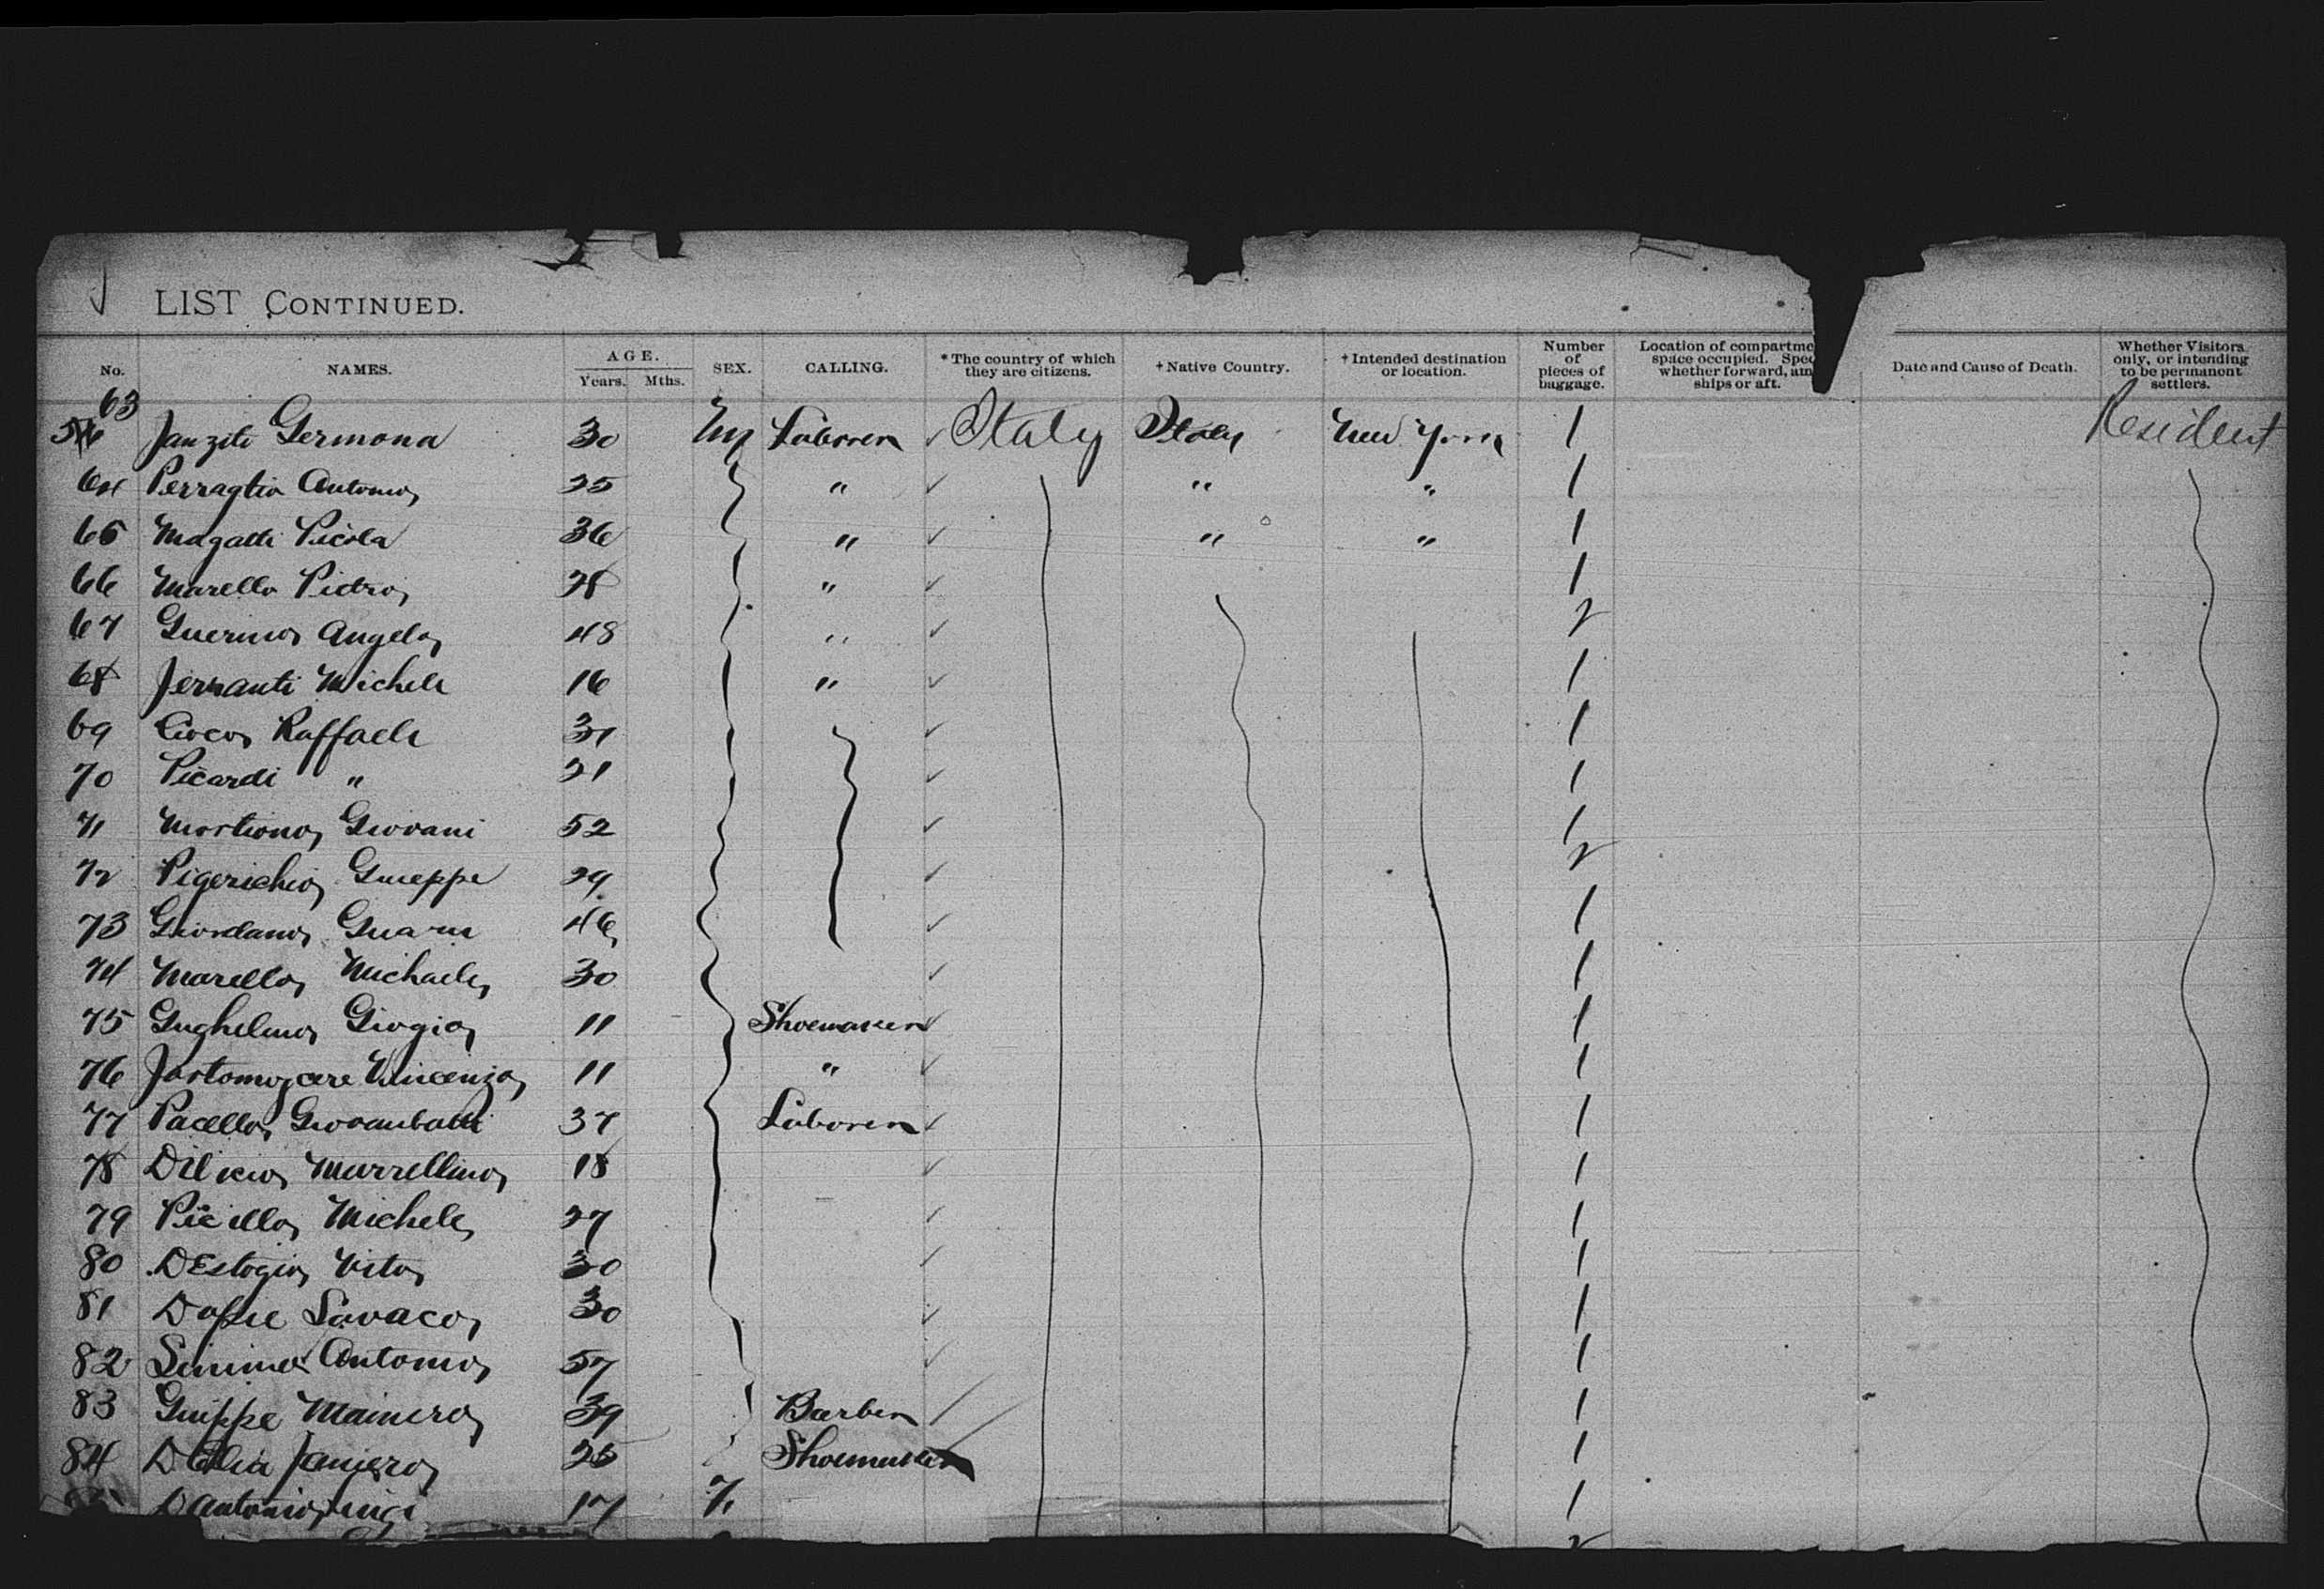 LIST CONTINUED.
No. NAMES. AGE. Years. Mths. SEX. CALLING. *The country of which they are citizens. †Native Country. †Intended destination or location. Number of pieces of baggage. Location of compartme space occupied. Spec whether forward, am ships or aft. Date and Cause of Death. Whether Visitors only, or intending to be permanent settlers.
63 Germona 30 Laborer Italy Italy New York 1 Resident
64 Antonio 25 " " " 1
65 Magatti Picola 36 " " " 1
66 Marello Pietro 28 " 1
67 Guerino Angelo 48 " 2
68 Michele 16 " 1
69 Cioco Raffaele 31 1
70 Picardi " 21 1
71 Giovani 52 1
72 Giuseppe 29 2
73 Giordano 46 1
74 Marello Michaele 30 1
75 Gughelmo Giorgio 11 Shoemaker 1
76 Vincenzo 11 " 1
77 Pacello Giovanbatti 37 Laborer 1
78 Murrellino 18 1
79 Picillo Michele 27 1
80 DEstogio Vito 30 1
81 30 1
82 Antonio 57 1
83 Mainero 39 Barber 1
84 D Elia 25 Shoemaker 1
D Antonio 17 1
2